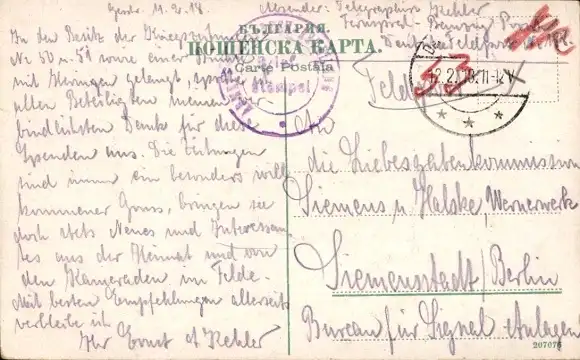 Geschr. 11.2.18
Absender: Telegraphist Kehler
Fernsprech-
Deutsche Feldpost
БЪЛГАРИЯ.
ПОЩЕНСКА КАРТА.
Carte Postale
Brief
Stempel
Feldpost
33
12.2.18.11-12V
In den Besitz der Kriegszeitung
No 50 u 51 sowie einer
mit Heringen gelangt, spreche
allen Beteiligten meinen ver
bindlichsten Dank für die
Spenden aus. Die Zeitungen
sind immer ein besonders will
kommener Gruss, bringen sie
doch stets Neues und Interessan
tes aus der Heimat und von
den Kameraden im Felde.
Mit besten Empfehlungen allerseits
verbleibe ich
Ihr Ernst Kehler
An
die Liebesgabenkommission
Siemens u Halske Wernerwerk
Siemensstadt/Berlin
Bureau für Signal Anlagen
207076